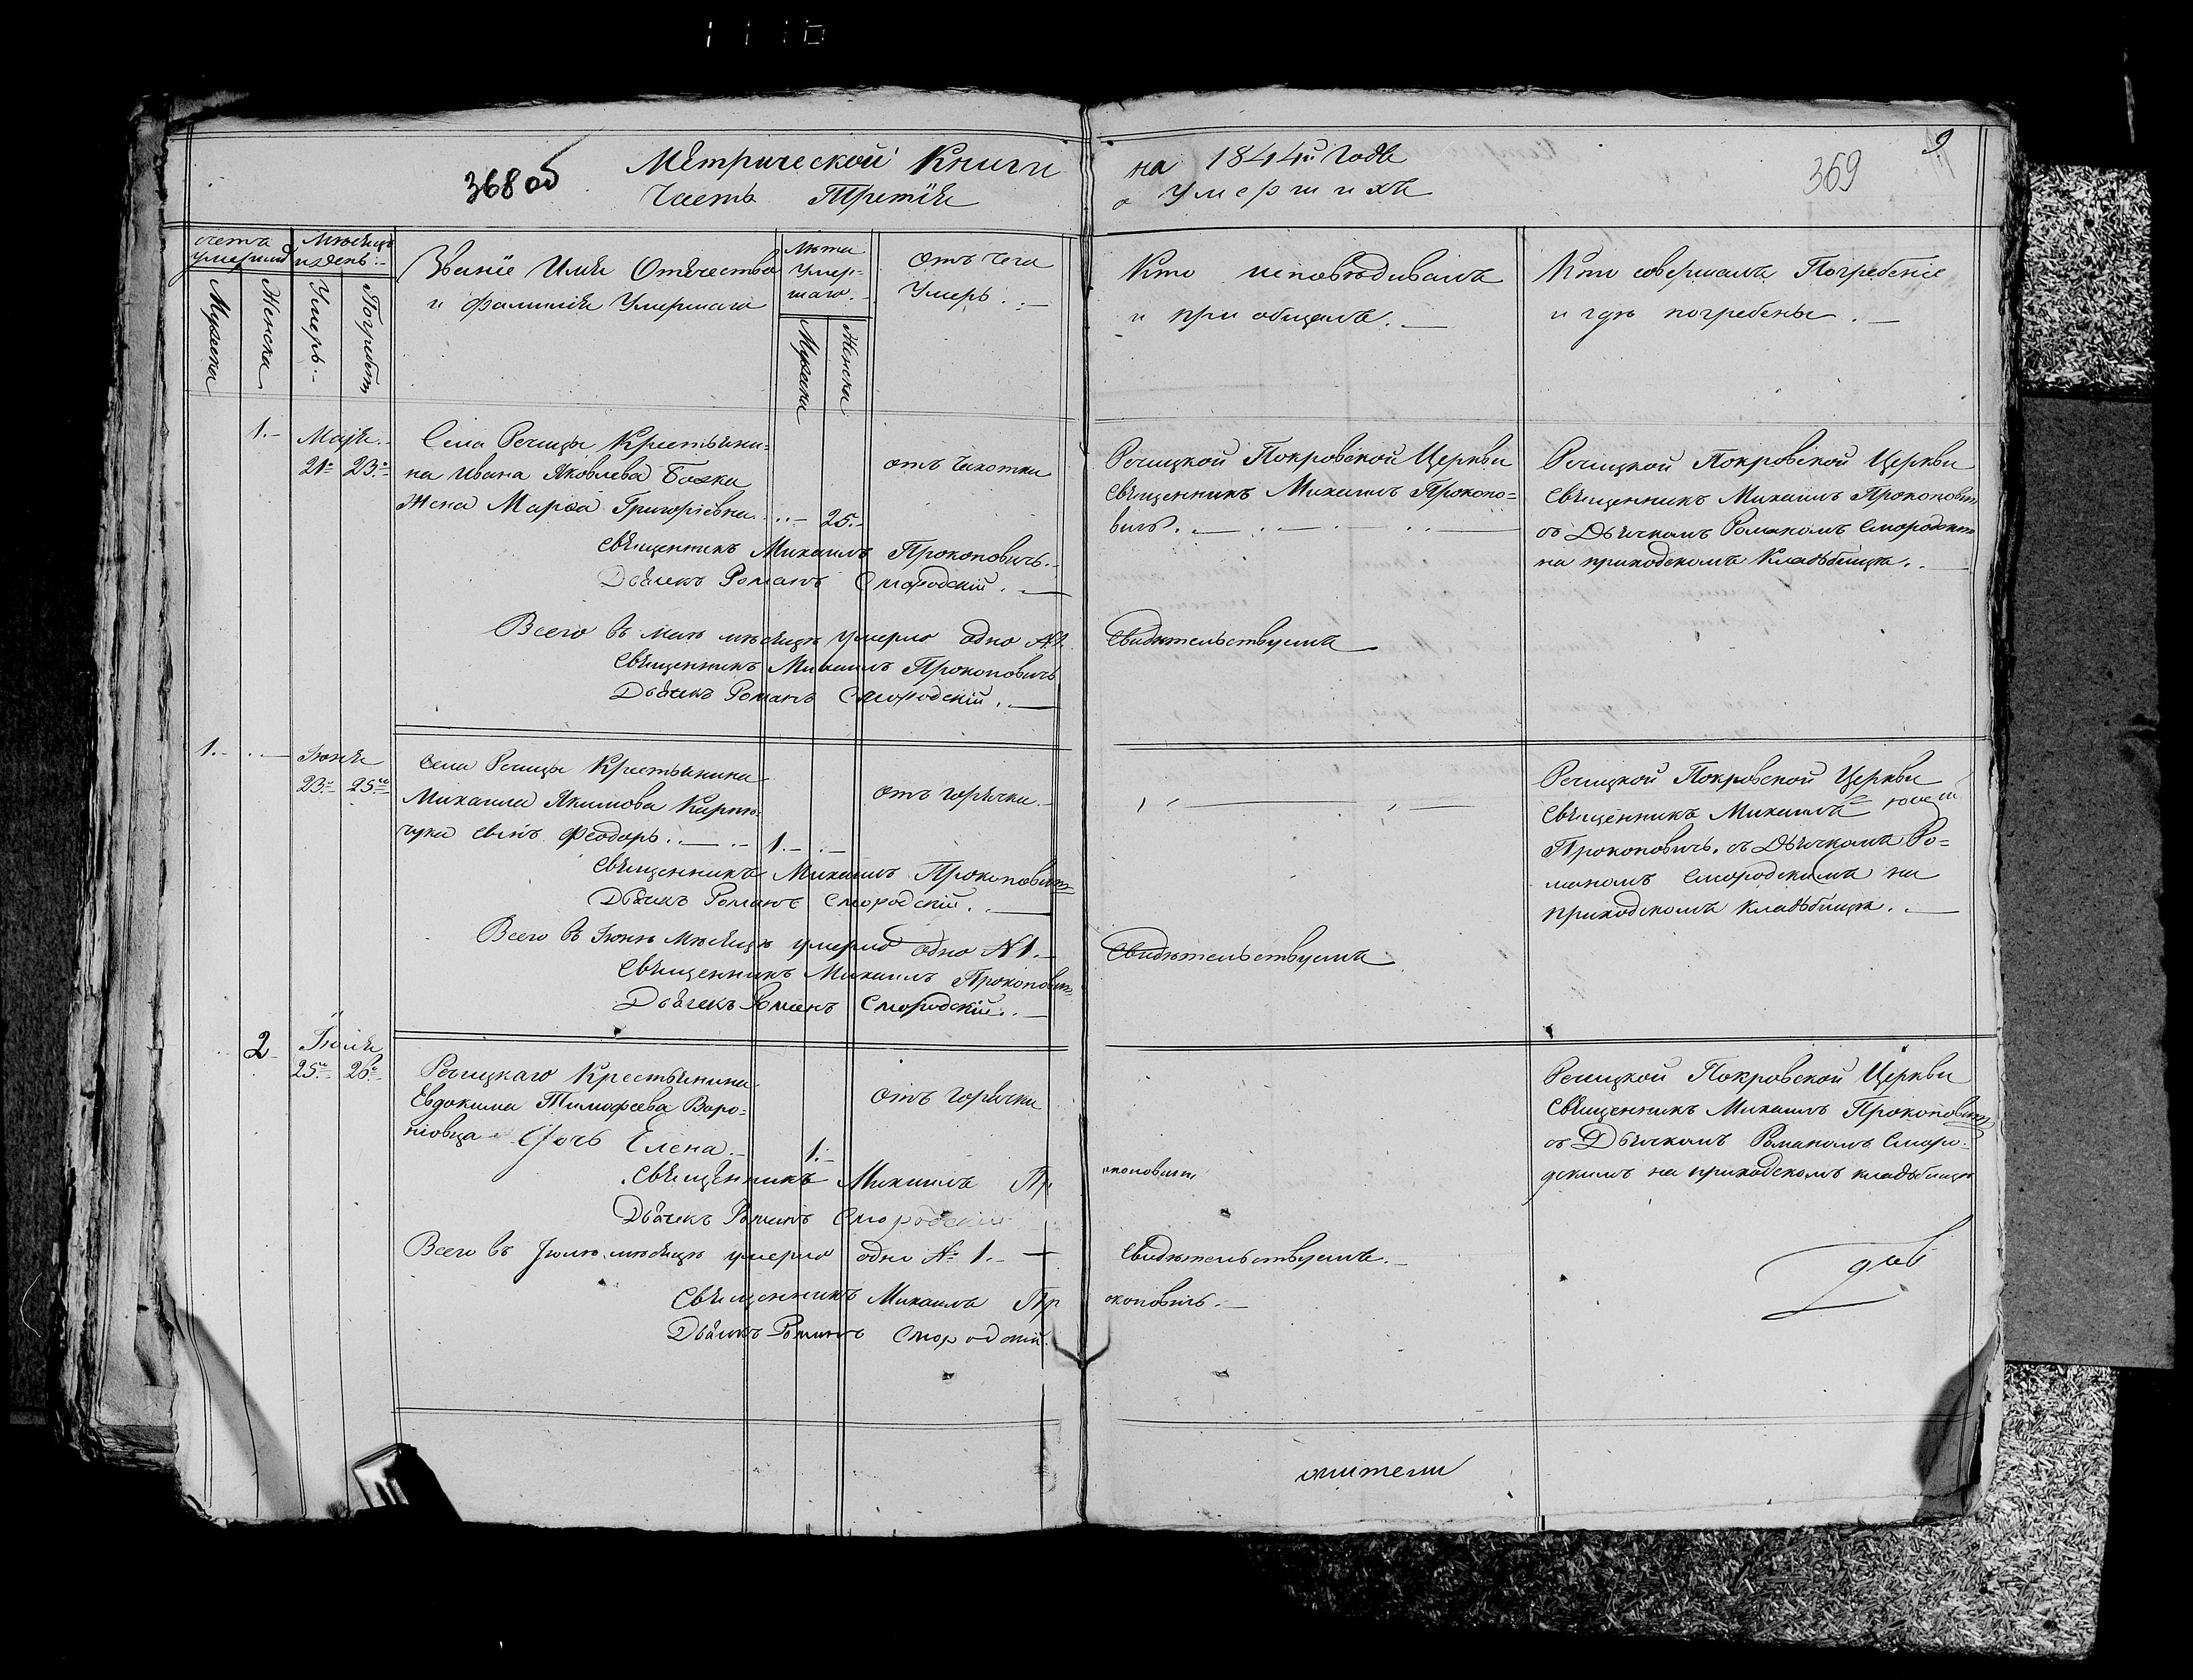 368 об
Метрической Книги
Часть Третія
на 1844й Годъ
о Умершихъ
369
9
счетъ умершихъ
Мужеска
Женска
Мѣсяцъ и день
Умеръ
Погребенъ
Званіе Имя Отчество
и фамилія Умершаго
Лѣта
Умер-
шаго.
Мужска
Женска
Отъ чего
Умеръ.
Кто исповѣдывалъ
и пріобщалъ.
Кто совершалъ Погребеніе
и гдѣ погребены.
1.
Маія
21. 23.
Села Речицы Крестьяни=
на Ивана Яковлева
Жена Марѳа Григоріевна. 25.
отъ чахотки
Священникъ Михаилъ Прокоповичъ.
Дьячекъ Романъ Смородскій.
Всего въ маѣ мѣсяцѣ умерло одно №1.
Священникъ Михаилъ Прокоповичъ
Дьячекъ Романъ Смородскій.
Речицкой Покровской Церкви
Священникъ Михаилъ Прокопо=
вичъ.
Свидѣтельствуемъ
Речицкой Покровской Церкви
Священникъ Михаилъ Прокоповичъ
съ Дьячкомъ Романомъ Смородскимъ
на приходскомъ Кладьбищѣ.
1.
Іюня
23. 25.
Села Речицы Крестьянина
Михаила Якимова Карпю-
чука сынъ Феодоръ. 1.
отъ горячки
Священникъ Михаилъ Прокоповичъ
Дьячекъ Романъ Смородскій.
Всего въ Іюнѣ мѣсяцѣ умерло одно №1.
Священникъ Михаилъ Прокоповичъ
Дьячекъ Романъ Смородскій.
Свидѣтельствуемъ
Речицкой Покровской Церкви
Священникъ Михаилъ
Прокоповичъ. съ Дьячкомъ Ро=
маномъ Смородскимъ на
приходскомъ кладьбищѣ.
2
Іюля
25. 26.
Речицкаго Крестьянина
Евдокима Тимофеева Воро=
ніовца Дочь Елена. 1.
отъ горячки
Священникъ Михаилъ Прокоповичъ
Дьячекъ Романъ Смородскій
Всего въ Іюлѣ мѣсяцѣ умерло одно № 1. Свидѣтельствуемъ.
Священникъ Михаилъ Прокоповичъ.
Дьячекъ Романъ Смородскій.
Речицкой Покровской Церкви
Священникъ Михаилъ Прокоповичъ
съ Дьячкомъ Романомъ Сморо-
дскимъ на приходскомъ кладьбищѣ